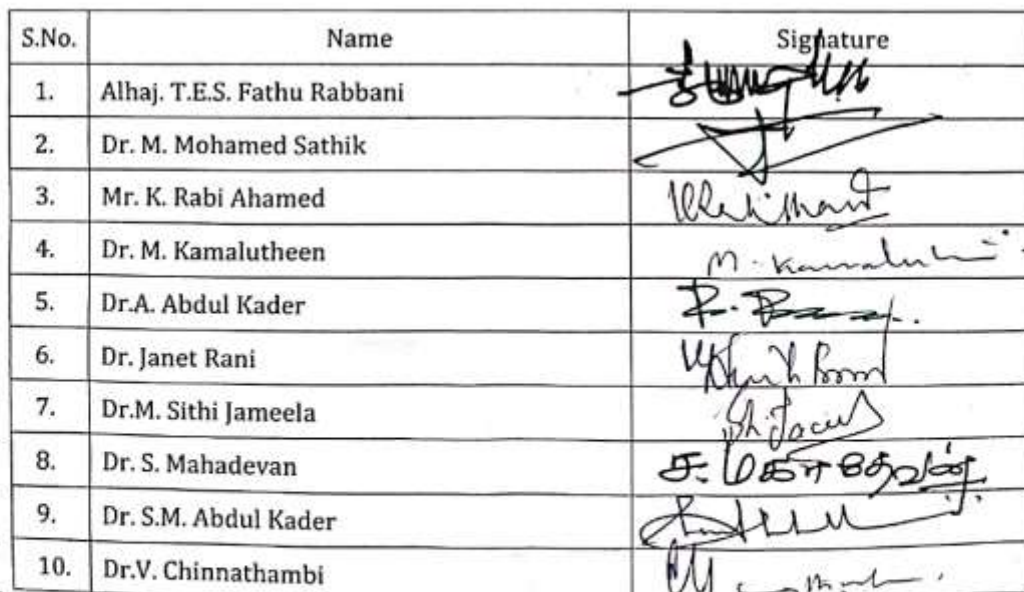 S.No. Name Signature
1. Alhaj. T.E.S. Fathu Rabbani
2. Dr. M. Mohamed Sathik
3. Mr. K. Rabi Ahamed
4. Dr. M. Kamalutheen M. Kamalutheen
5. Dr.A. Abdul Kader
6. Dr. Janet Rani
7. Dr.M. Sithi Jameela
8. Dr. S. Mahadevan ச. மகாதேவன்
9. Dr. S.M. Abdul Kader
10. Dr.V. Chinnathambi